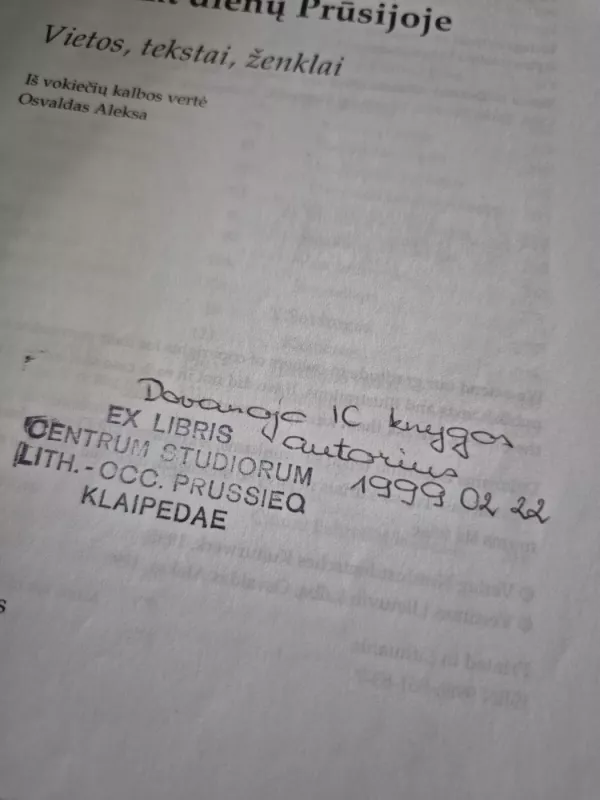 dienų Prūsijoje
Vietos, tekstai, ženklai
Iš vokiečių kalbos vertė
Osvaldas Aleksa
Dovanoja IC knygos
autorius
1999 02 22
EX LIBRIS
CENTRUM STUDIORUM
LITH.-OCC. PRUSSIEQ
KLAIPEDAE
s